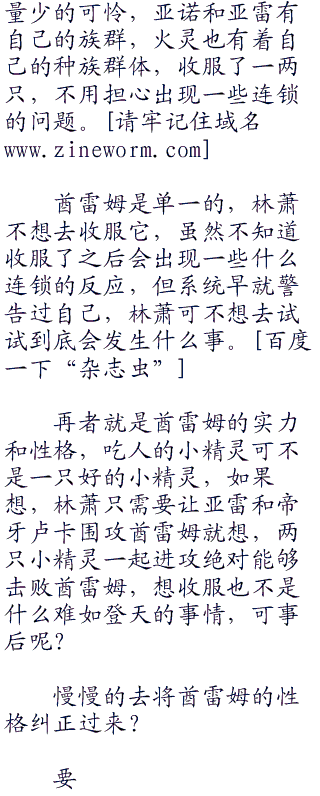 量少的可怜，亚诺和亚雷有
自己的族群，火灵也有着自
己的种族群体，收服了一两
只，不用担心出现一些连锁
的问题。[请牢记住域名
www.zineworm.com]
酋雷姆是单一的，林萧
不想去收服它，虽然不知道
收服了之后会出现一些什么
连锁的反应，但系统早就警
告过自己，林萧可不想去试
试到底会发生什么事。[百度
一下“杂志虫”]
再者就是酋雷姆的实力
和性格，吃人的小精灵可不
是一只好的小精灵，如果
想，林萧只需要让亚雷和帝
牙卢卡围攻酋雷姆就想，两
只小精灵一起进攻绝对能够
击败酋雷姆，想收服也不是
什么难如登天的事情，可事
后呢？
慢慢的去将酋雷姆的性
格纠正过来？
要